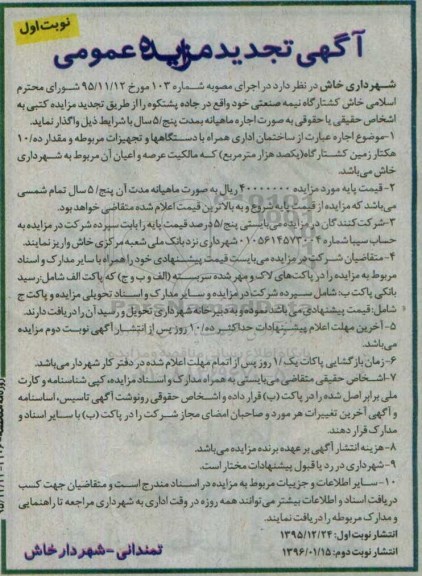 نوبت اول
آگهی تجدید مزایده عمومی
شهرداری خاش در نظر دارد در اجرای مصوبه شماره ۱۰۳ مورخ ۹۵/۱۱/۱۲ شورای محترم
اسلامی خاش کشتارگاه نیمه صنعتی خود واقع در جاده پشتکوه را از طریق تجدید مزایده کتبی به
اشخاص حقیقی یا حقوقی به صورت اجاره ماهیانه بمدت پنج/۵ سال با شرایط ذیل واگذار نماید.
۱-موضوع اجاره عبارت از ساختمان اداری همراه با دستگاهها و تجهیزات مربوطه و مقدار ده/۱۰
هکتار زمین کشتارگاه (یکصد هزار متر مربع) که مالکیت عرصه و اعیان آن مربوط به شهرداری
خاش می‌باشد.
۲- قیمت پایه مورد مزایده ۴۰۰۰۰۰۰۰ ریال به صورت ماهیانه مدت آن پنج/ ۵ سال تمام شمسی
می‌باشد که مزایده از قیمت پایه شروع و به بالاترین قیمت اعلام شده متقاضی خواهد بود.
۳-شرکت کنندگان در مزایده می‌بایستی پنج/۵ درصد قیمت پایه را بابت سپرده شرکت در مزایده به
حساب سیبا شماره ۰۱۰۵۶۱۴۵۷۳۰۰۴ شهرداری نزد بانک ملی شعبه مرکزی خاش واریز نمایند.
۴-متقاضیان شرکت در مزایده می‌بایست قیمت پیشنهادی خود را همراه با سایر مدارک و اسناد
مربوط به مزایده را در پاکت‌های لاک و مهر شده سربسته (الف و ب و ج) که پاکت الف شامل: رسید
بانکی پاکت ب: شامل سپرده شرکت در مزایده و سایر مدارک و اسناد تحویلی مزایده و پاکت ج
شامل: قیمت پیشنهادی می‌باشد نموده و به دبیرخانه شهرداری تحویل و رسید آن را دریافت دارند.
۵- آخرین مهلت اعلام پیشنهادات حداکثر ده/۱۰ روز پس از انتشار آگهی نوبت دوم مزایده
می‌باشد.
۶-زمان بازگشایی پاکات یک/۱ روز پس از اتمام مهلت اعلام شده در دفتر کار شهردار می‌باشد.
۷-اشخاص حقیقی متقاضی می‌بایستی به همراه مدارک و اسناد مزایده، کپی شناسنامه و کارت
ملی برابر اصل شده را در پاکت (ب) قرار داده و اشخاص حقوقی رونوشت آگهی تاسیس، اساسنامه
و آگهی آخرین تغییرات هر مورد و صاحبان امضای مجاز شرکت را در پاکت (ب) با سایر اسناد و
مدارک قرار دهند.
۸-هزینه انتشار آگهی بر عهده برنده مزایده می‌باشد.
۹-شهرداری در رد یا قبول پیشنهادات مختار است.
۱۰-سایر اطلاعات و جزییات مربوط به مزایده در اسناد مندرج است و متقاضیان جهت کسب
دریافت اسناد و اطلاعات بیشتر می‌توانند همه روزه در وقت اداری به شهرداری مراجعه تا راهنمایی
و مدارک مربوطه را دریافت نمایند.
انتشار نوبت اول: ۱۳۹۵/۱۲/۲۴
انتشار نوبت دوم: ۱۳۹۶/۰۱/۱۵
تمندانی-شهردار خاش